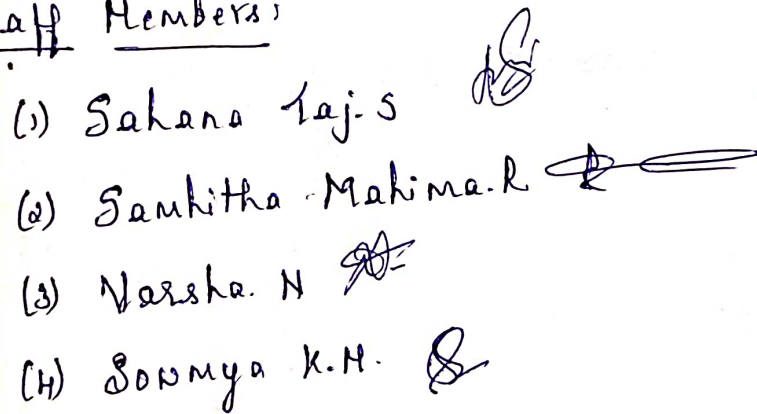 aff Members:
(1) Sahana Taj. S
(2) Samhitha Mahima. R
(3) Varsha. N
(4) Sowmya K.M.